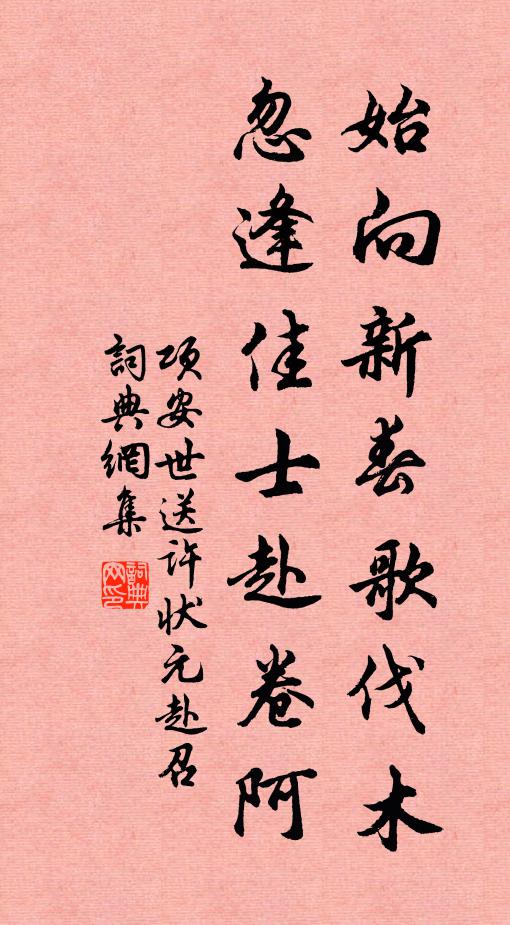 始向新春歌伐木
忽逢佳士赴卷阿
项安世送许状元赴召
詞典網集
詞典網印